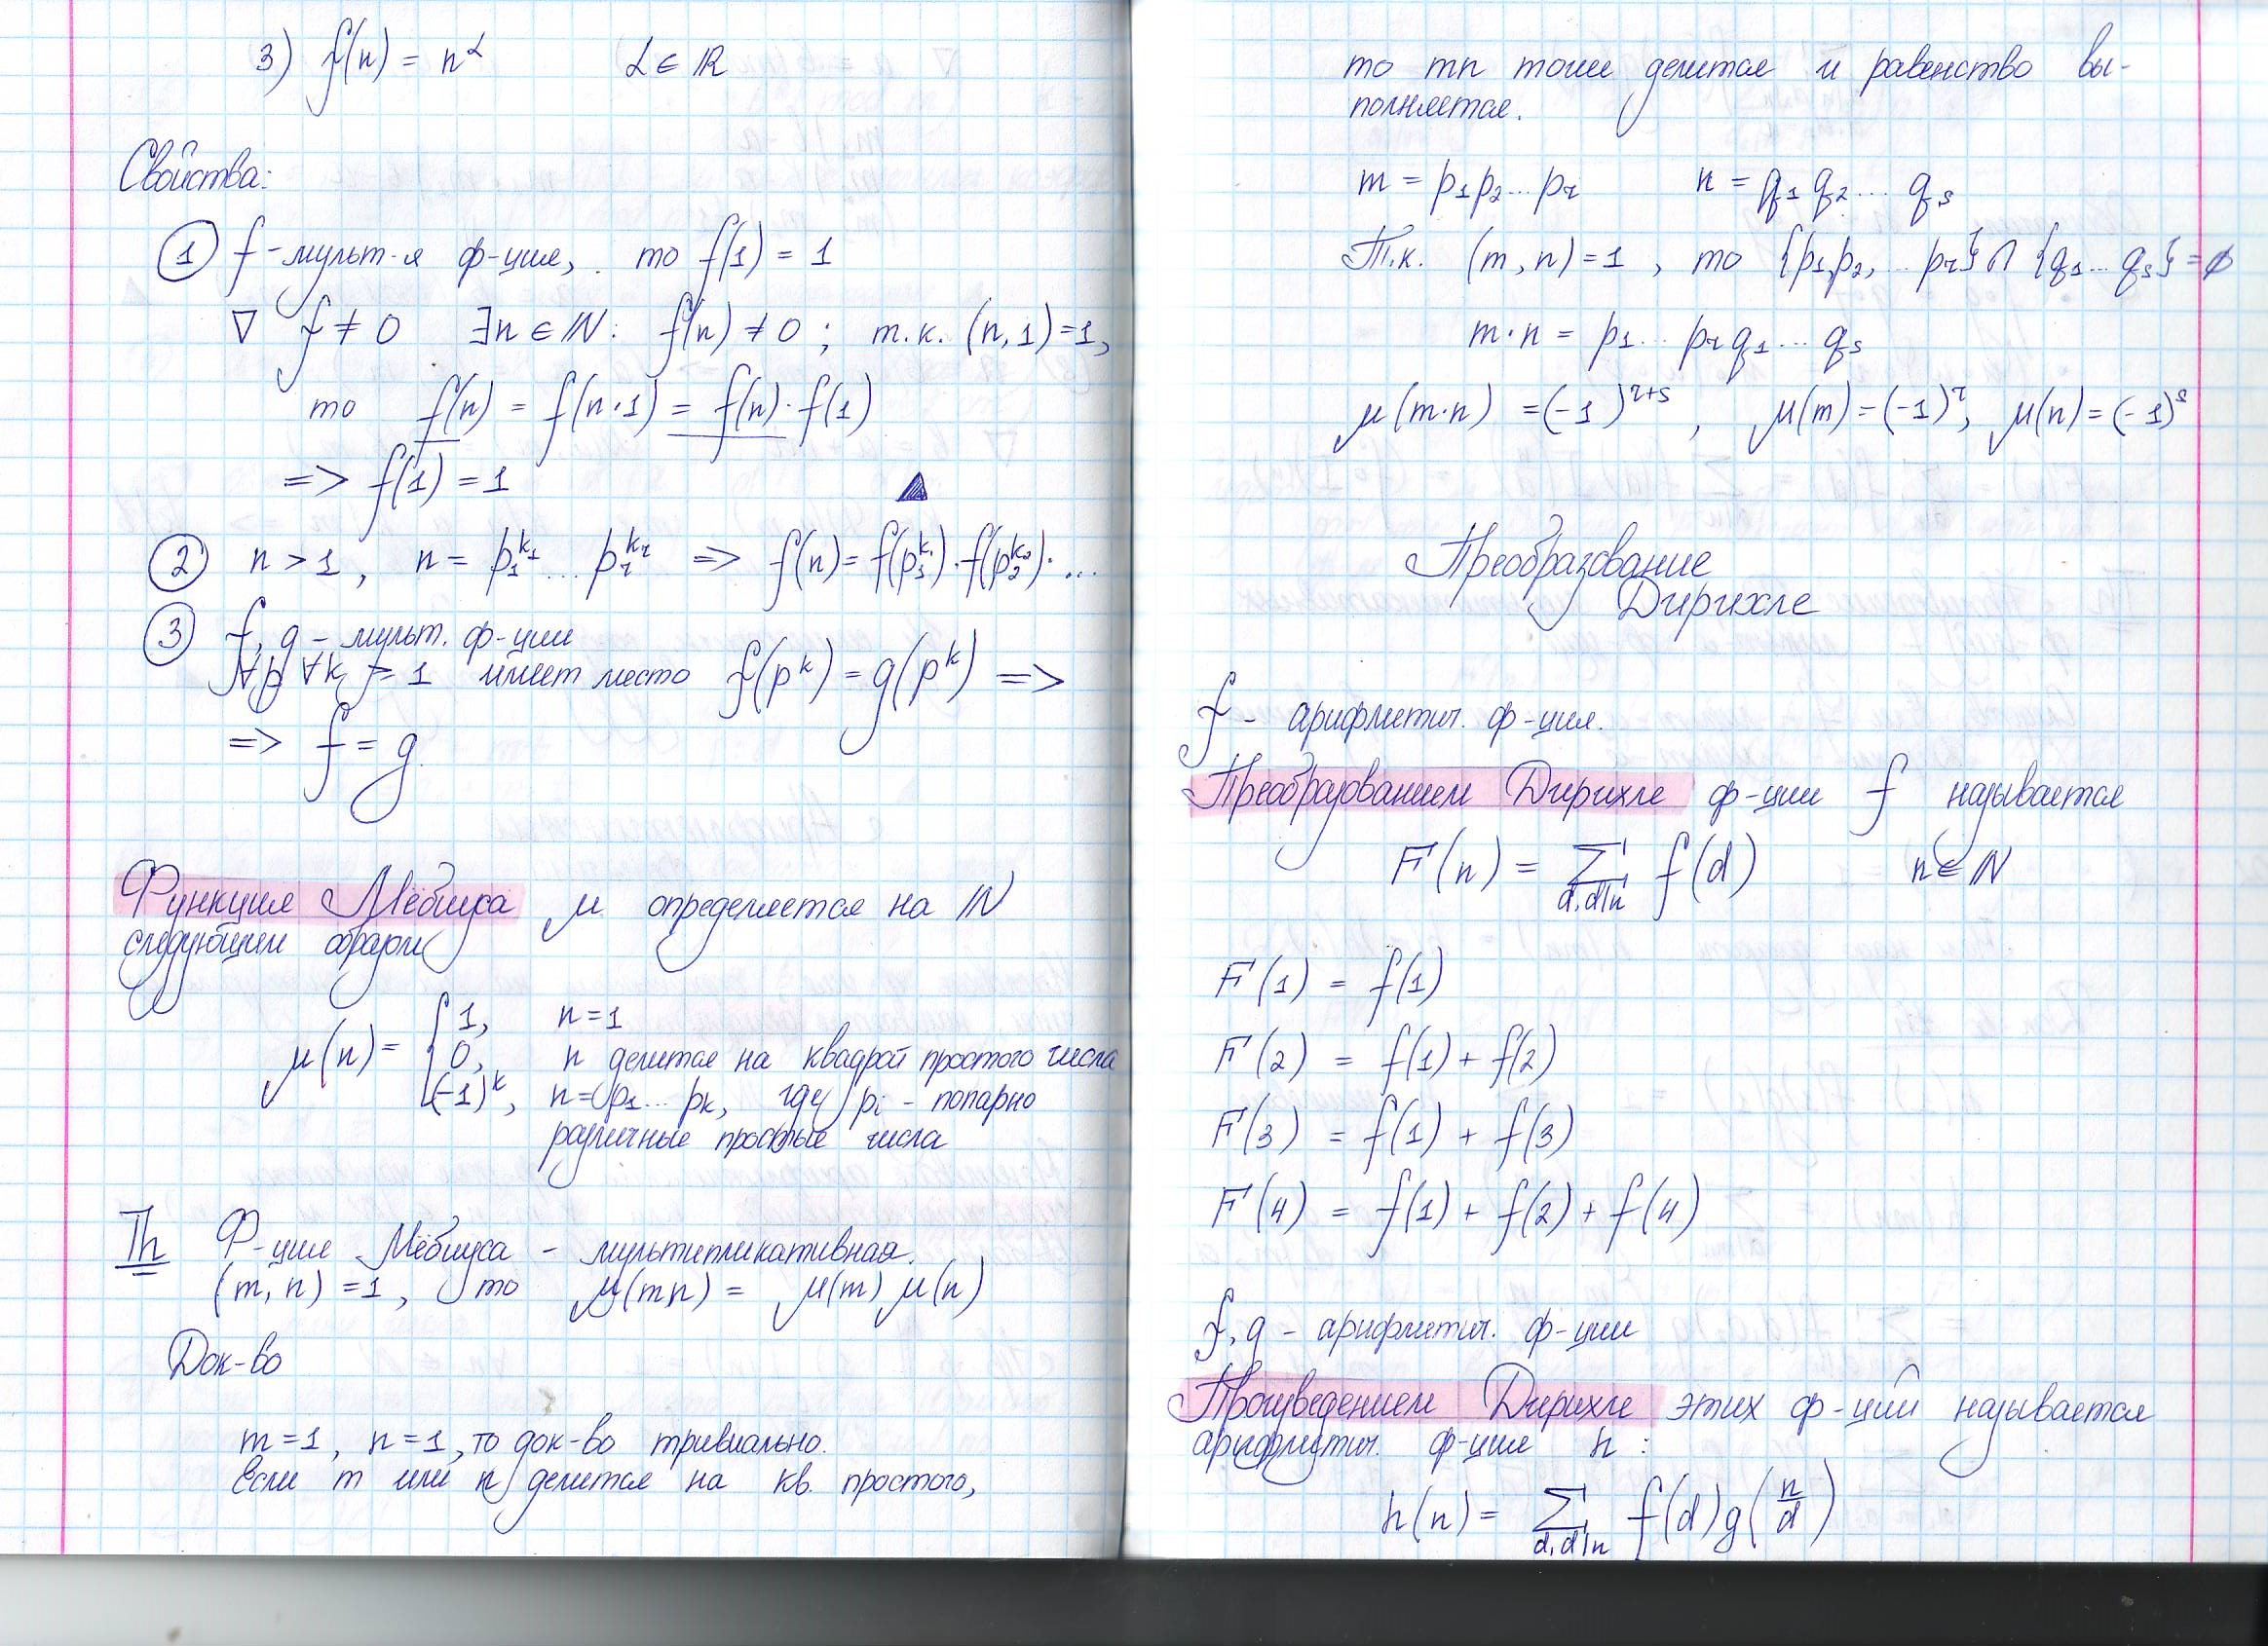 3) f(n) = n^α   α ∈ ℝ
Свойства:
① f - мульт-я ф-ция, то f(1) = 1
∇ f ≠ 0   ∃n ∈ ℕ: f(n) ≠ 0 ; т.к. (n, 1)=1,
то f(n) = f(n·1) = f(n)·f(1)
=> f(1) = 1 ▲
② n > 1, n = p₁^k₁ ... p_r^k_r => f(n) = f(p₁^k₁)·f(p₂^k₂)·...
③ f, g - мульт. ф-ции
∀p ∀k ≥ 1 имеет место f(p^k) = g(p^k) =>
=> f = g.
Функция Мёбиуса μ определяется на ℕ
следующим образом
μ(n) = { 1, n=1
0, n делится на квадрат простого числа
(-1)^k, n = p₁...p_k, где p_i - попарно
различные простые числа
Th Ф-ция Мёбиуса - мультипликативная.
(m, n) = 1, то μ(mn) = μ(m) μ(n)
Док-во
m=1, n=1, то док-во тривиально.
Если m или n делится на кв. простого,
то mn тоже делится и равенство вы-
полняется.
m = p₁p₂...p_r   n = q₁q₂...q_s
Т.к. (m, n)=1, то {p₁,p₂,...p_r} ∩ {q₁...q_s} = ∅
m·n = p₁...p_r q₁...q_s
μ(m·n) = (-1)^{r+s}, μ(m) = (-1)^r, μ(n) = (-1)^s
Преобразование
Дирихле
f - арифметич. ф-ция.
Преобразованием Дирихле ф-ции f называется
F(n) = ∑_{d,d|n} f(d)   n ∈ ℕ
F(1) = f(1)
F(2) = f(1) + f(2)
F(3) = f(1) + f(3)
F(4) = f(1) + f(2) + f(4)
f, g - арифметич. ф-ции
Произведением Дирихле этих ф-ций называется
арифметич. ф-ция h :
h(n) = ∑_{d,d|n} f(d)g(n/d)